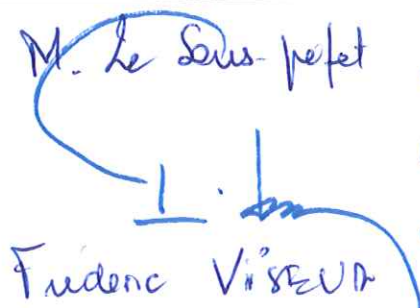 M. Le Sous-préfet
Frédéric VISEUR